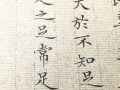 大於不知足
足之足常足